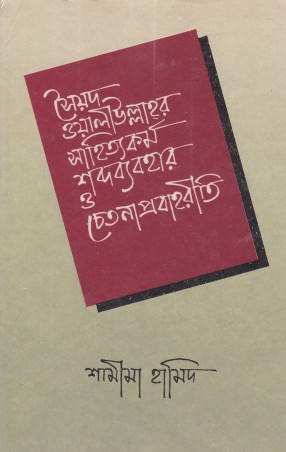 সৈয়দ
ওয়ালীউল্লাহর
সাহিত্যকর্ম
শব্দব্যবহার
ও
চেতনাপ্রবাহরীতি
শামীমা হামিদ